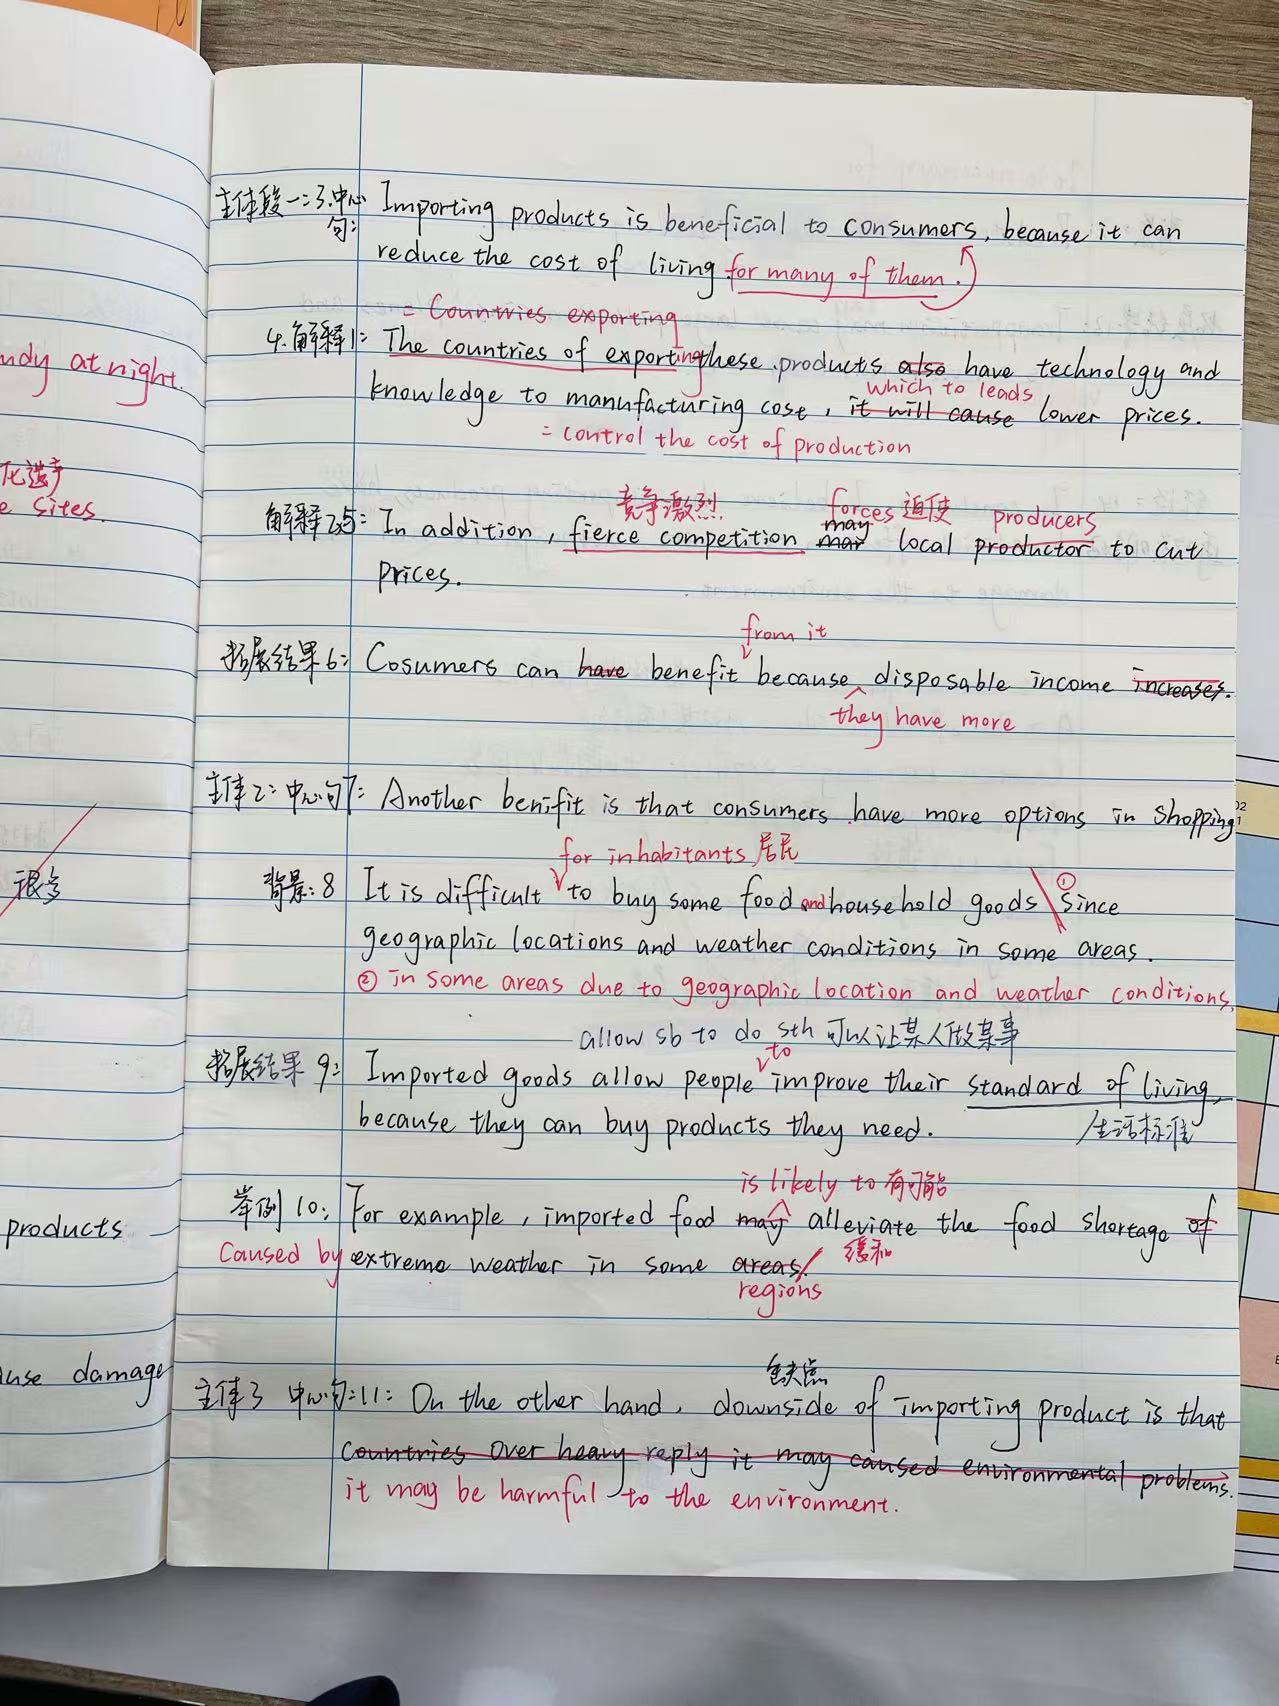 主体段一:3.中心句: Importing products is beneficial to consumers, because it can
reduce the cost of living for many of them.
= Countries exporting
4.解释1: The countries of exporting these products also have technology and
which to leads
knowledge to manufacturing cose, it will cause lower prices.
= control the cost of production
竞争激烈 forces 迫使 producers
may
解释2,5: In addition, fierce competition may local productor to cut
prices.
from it
拓展结果6: Cosumers can have benefit because disposable income increases.
they have more
主体2:中心句7: Another benifit is that consumers have more options in shopping
for inhabitants 居民
背景:8 It is difficult to buy some food and household goods ① since
geographic locations and weather conditions in some areas.
② in some areas due to geographic location and weather conditions,
allow sb to do sth 可以让某人做某事
to
拓展结果9: Imported goods allow people improve their standard of living,
because they can buy products they need. 生活标准
is likely to 有可能
举例10: For example, imported food may alleviate the food shortage of
caused by extreme weather in some areas. 缓和
regions
缺点
主体3 中心句:11: On the other hand, downside of importing product is that
countries over heavy reply it may caused environmental problems.
it may be harmful to the environment.
udy at night.
化遗产
e sites.
很多
products
use damage